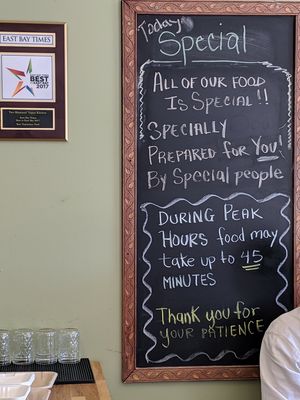 EAST BAY TIMES
BEST
2017
Today
Special
ALL OF OUR FOOD
IS SPECIAL!!
SPECIALLY
PREPARED FOR YOU!
BY SPECIAL PEOPLE
DURING PEAK
HOURS food may
take up to 45
MINUTES
Thank you for
YOUR PATIENCE